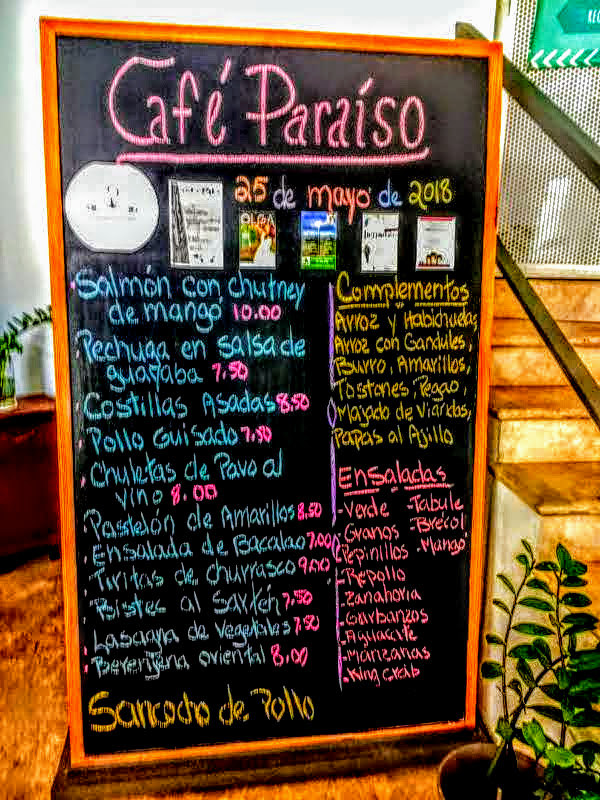 Café Paraíso
25 de mayo de 2018
Salmón con chutney
de mango 10.00
Pechuga en salsa de
guayaba 7.50
Costillas Asadas 8.50
Pollo Guisado 7.50
Chuletas de Pavo al
vino 8.00
Pastelón de Amarillos 8.50
Ensalada de Bacalao 7.00
Tiritas de churrasco 9.00
Bistec al Sartén 7.50
Lasagna de vegetales 7.50
Berenjena oriental 8.00
Sancocho de Pollo
Complementos
Arroz y Habichuelas,
Arroz con Gandules,
Burro, Amarillos,
Tostones, Pegao,
Majado de Viandas,
Papas al Ajillo
Ensaladas
-Verde
-Granos
-Pepinillos
-Repollo
-Zanahoria
-Garbanzos
-Aguacate
-Manzanas
-King crab
-Tabule
-Brecol
-Mango